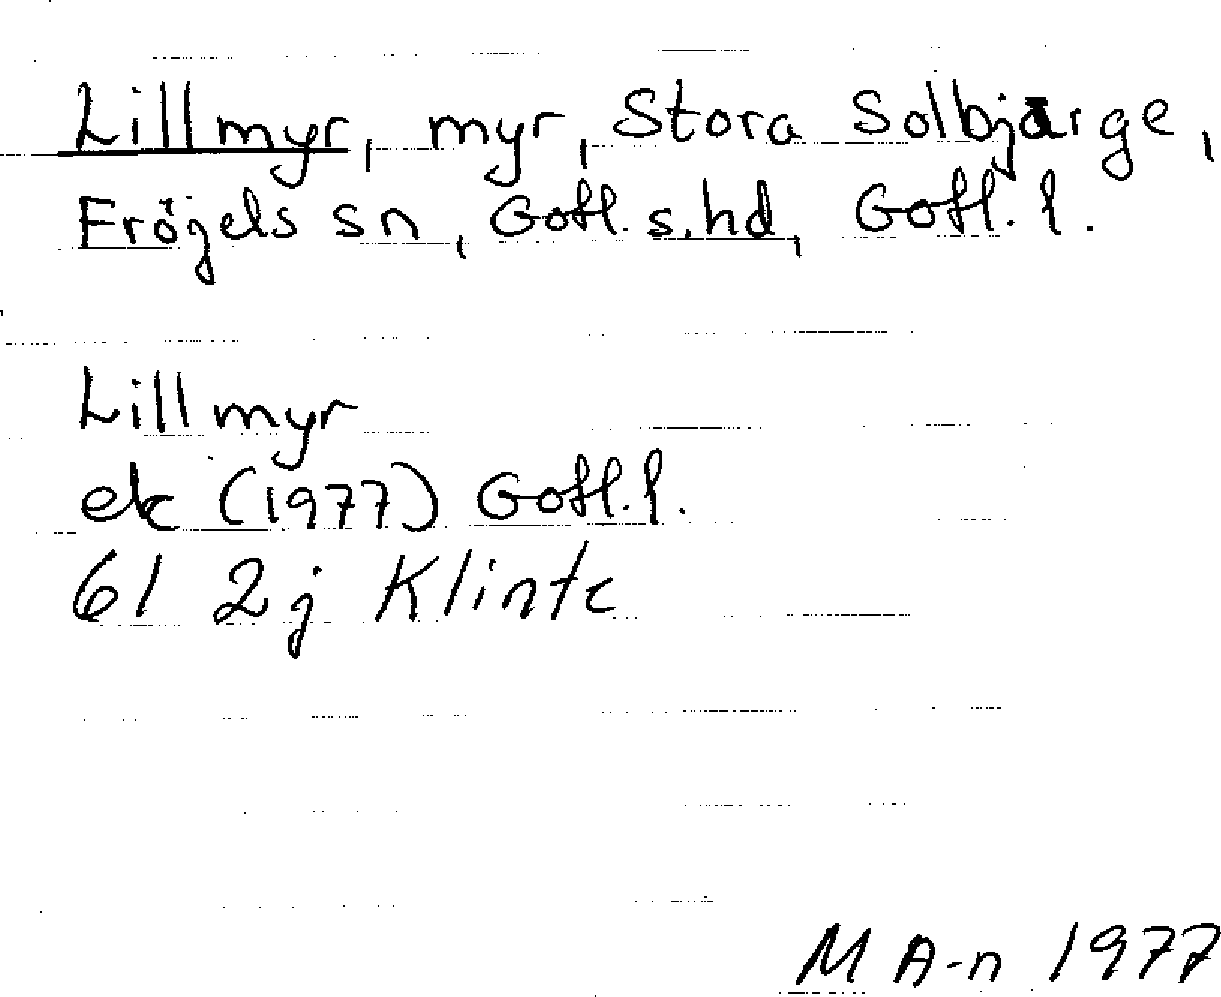 Lillmyr, myr, Stora Solbjärge,
Fröjels sn, Gotl. s. hd, Gotl. l.
Lillmyr
ek (1977) Gotl. l.
6I 2j Klinte
M A-n 1977